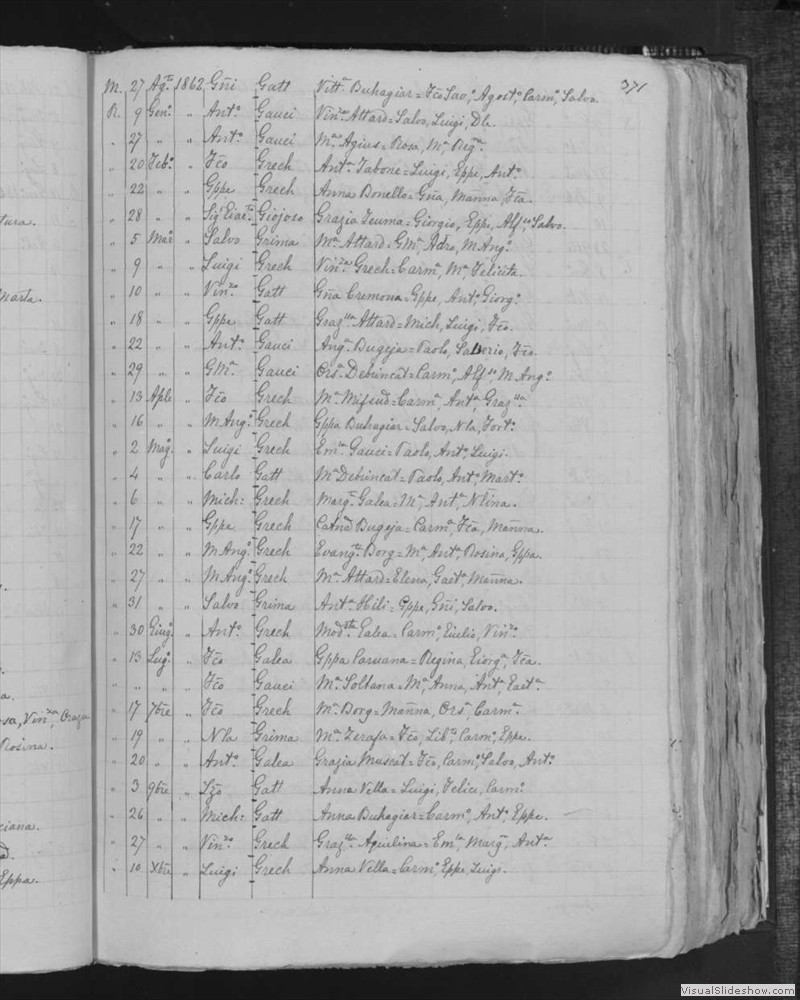 371
M. 27 Agto. 1862 Gñi Gatt Vitta. Buhagiar = Fco Sav.o, Agost.o, Carm.o, Salvo.
R. 9 Gen.o " Ant.o Gauci Vin.za Attard = Salvo, Luigi,
" 27 " " Ant.o Gauci M.a Agius = Rosa, M.a Reg.a
" 20 Feb.o " Fco Grech Ant.a Tabone = Luigi, Gppe, Ant.o
" 22 " " Gppe Grech Anna Bonello = Gña, Mañna, Fca.
" 28 " " Giojoso Grazia Zeuma = Giorgio, Gppe, Alf.so, Salvo.
" 5 Mar. " Salvo Grima M.a Attard = GM.a, Adro, M Ang.o
" 9 " " Luigi Grech Vin.za Grech = Carm.a, M.a, Felicita.
" 10 " " Vin.zo Gatt Gña Cremona = Gppe, Ant.o, Giorg.o
" 18 " " Gppe Gatt Graz.lla Attard = Mich, Luigi, Fco.
" 22 " " Ant.o Gauci Ang.a Bugeja = Paolo, Saverio, Fco.
" 29 " " GM.a Gauci Ors.a Debuncat = Carm.o, Alf.so, M Ang.o
" 13 Aple " Fco Grech M.a Mifsud = Carm.a, Ant.a, Graz.lla
" 16 " " M Ang.o Grech Gppa Buhagiar = Salvo, Nla, Fort.o
" 2 Mag.o " Luigi Grech Em.la Gauci = Paolo, Ant.o, Luigi.
" 4 " " Carlo Gatt M.a Debuncat = Paolo, Ant.o, Mart.o
" 6 " " Mich: Grech Marg.a Galea = M.a, Ant.a, Nlina.
" 17 " " Gppe Grech Catna Bugeja = Carm.a, Fca, Mañna.
" 22 " " M Ang.o Grech Evang.ta Borg = M.a, Ant.a, Rosina, Gppa.
" 27 " " M Ang.o Grech M.a Attard = Elena, Gaet.a, Mañna.
" 31 " " Salvo Grima Ant.a Hili = Gppe, Gñi, Salvo.
" 30 Giug.o " Ant.o Grech Mod.sta Galea = Carm.o, Giulio, Vin.zo
" 13 Lug.o " Fco Galea Gppa Caruana = Regina, Giorg.a, Fca.
" " " Fco Gauci M.a Soltana = M.a, Anna, Ant.a, Gaet.a
" 17 7bre " Fco Grech M.a Borg = Mañna, Ors.a, Carm.a
" 19 " " Nla Grima M.a Zerafa = Fco, Lib.o, Carm.o, Gppe.
" 20 " " Ant.o Galea Grazia Muscat = Fco, Carm.o, Salvo, Ant.o
" 3 9bre " Lzo Gatt Anna Vella = Luigi, Felice, Carm.o
" 26 " " Mich: Gatt Anna Buhagiar = Carm.o, Ant.o, Gppe.
" 27 " " Vin.zo Grech Graz.lla Aquilina = Em.la, Marg.a, Ant.a
" 10 Xbre " Luigi Grech Anna Vella = Carm.o, Gppe, Luigi.
VisualSlideshow.com